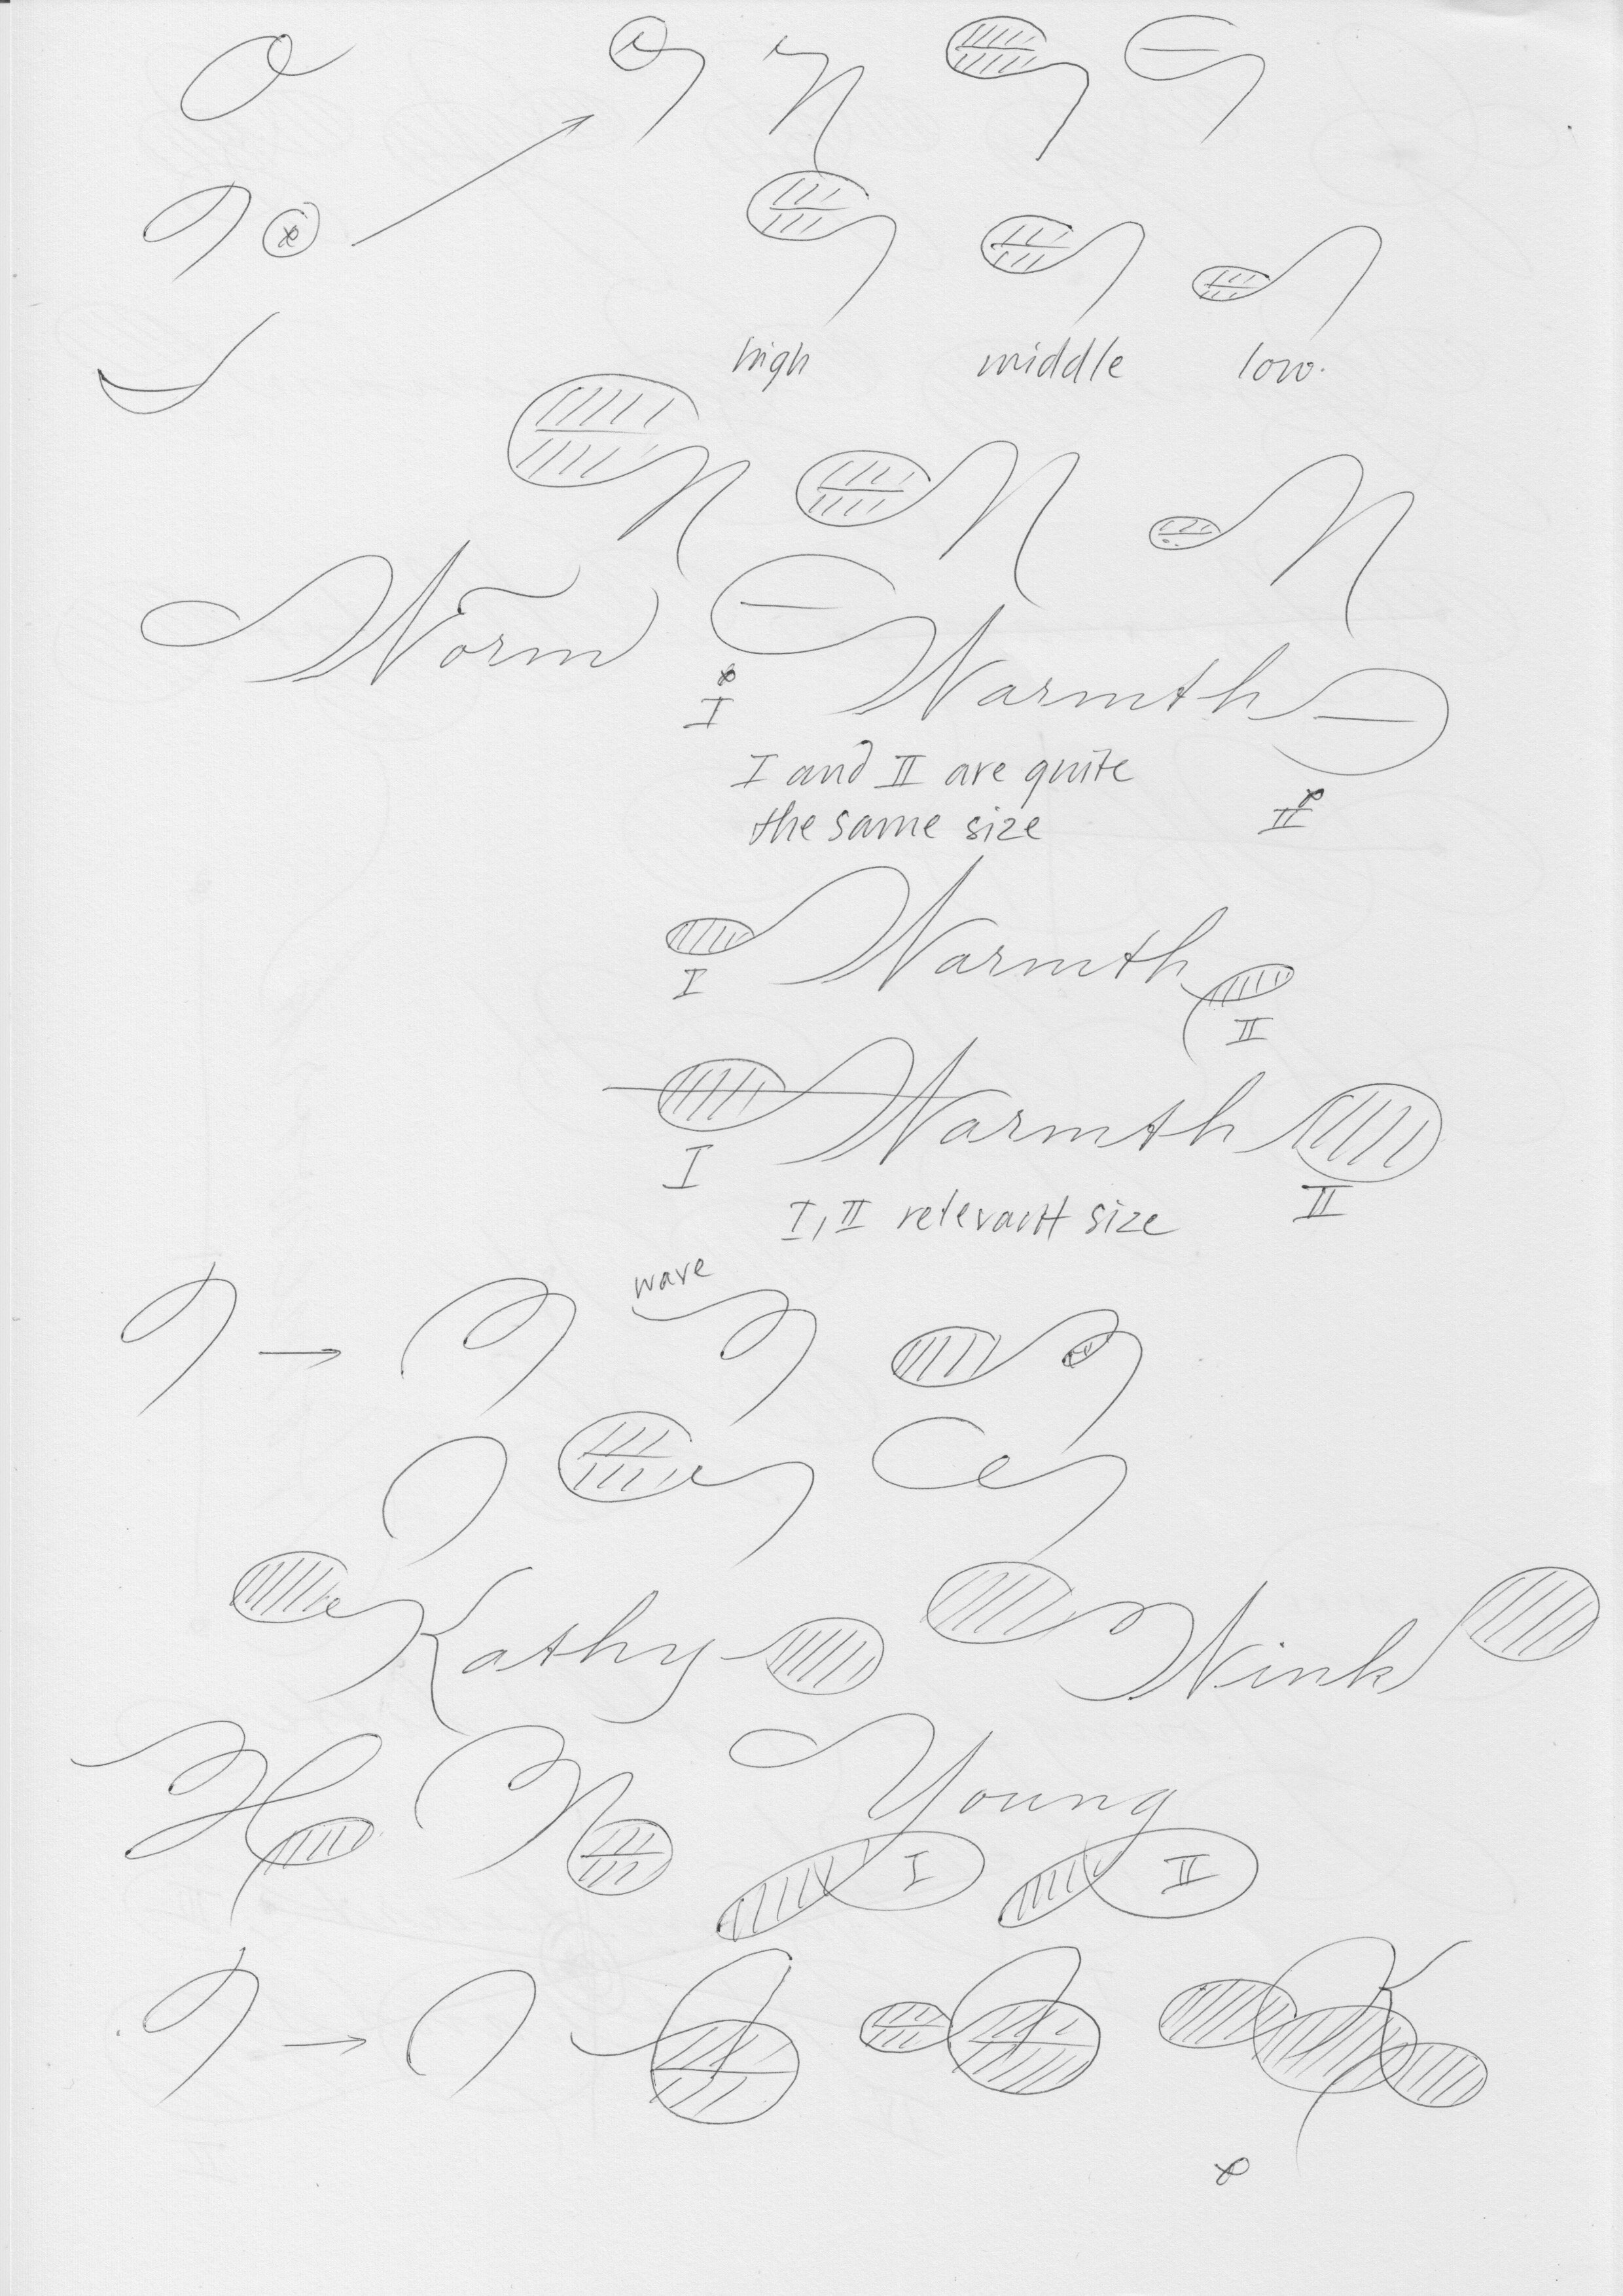 high middle low.
Worm
Warmth
I
II
I and II are quite
the same size
Warmth
I
II
Warmth
I
II
I, II relevant size
wave
Kathy Wink
H N Young
I II
K